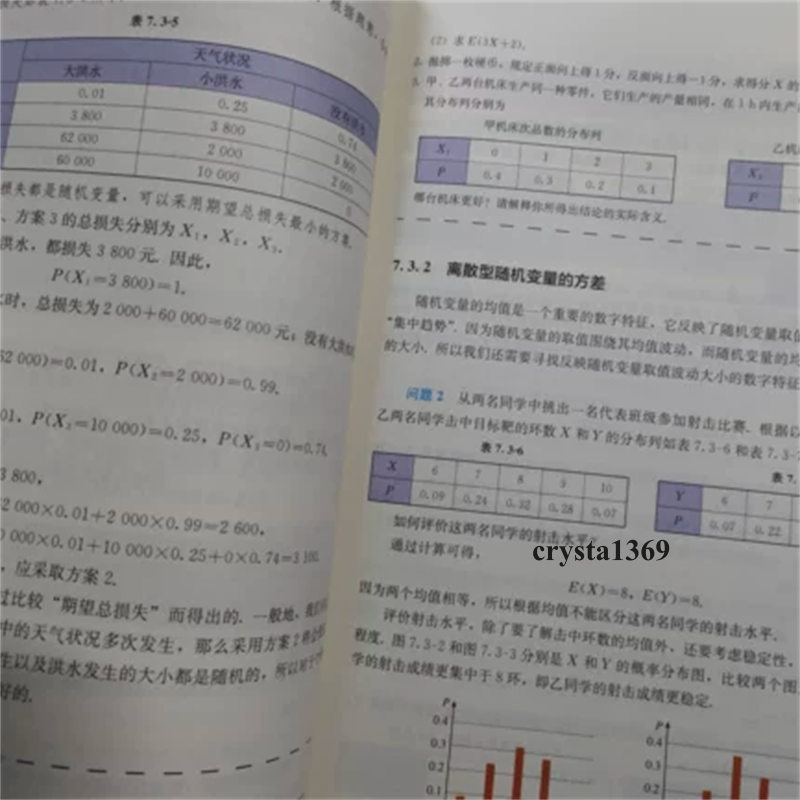 表 7.3-5
天气状况
大洪水 小洪水 没有洪水
0.01 0.25 0.74
3 800 3 800 3 800
62 000 2 000 2 000
60 000 10 000 0
损失都是随机变量，可以采用期望总损失最小的方案.
、方案 3 的总损失分别为 X₁，X₂，X₃.
洪水，都损失 3 800 元. 因此，
P(X₁=3 800)=1.
时，总损失为 2 000+60 000=62 000 元；没有大洪
62 000)=0.01，P(X₂=2 000)=0.99.
01，P(X₃=10 000)=0.25，P(X₃=0)=0.74.
3 800，
2 000×0.01+2 000×0.99=2 600，
0 000×0.01+10 000×0.25+0×0.74=3 100.
，应采取方案 2.
过比较“期望总损失”而得出的. 一般地，我们
中的天气状况多次发生，那么采用方案 2 将会
生以及洪水发生的大小都是随机的，所以对于
好的.
(2) 求 E(3X+2).
2. 抛掷一枚硬币，规定正面向上得 1 分，反面向上得-1 分，求得分 X 的
3. 甲、乙两台机床生产同一种零件，它们生产的产量相同，在 1 h 内生产
其分布列分别为
甲机床次品数的分布列
乙机
X₁ 0 1 2 3
P 0.4 0.3 0.2 0.1
X₂
P
哪台机床更好？请解释你所得出结论的实际含义.
7.3.2 离散型随机变量的方差
随机变量的均值是一个重要的数字特征，它反映了随机变量取值
“集中趋势”. 因为随机变量的取值围绕其均值波动，而随机变量的均
的大小. 所以我们还需要寻找反映随机变量取值波动大小的数字特征
问题 2 从两名同学中挑出一名代表班级参加射击比赛. 根据以
乙两名同学击中目标靶的环数 X 和 Y 的分布列如表 7.3-6 和表 7.3-7
表 7.3-6
表 7.
X 6 7 8 9 10
P 0.09 0.24 0.32 0.28 0.07
Y 6 7
P 0.07 0.22
如何评价这两名同学的射击水平？
通过计算可得，
crysta1369
E(X)=8，E(Y)=8.
因为两个均值相等，所以根据均值不能区分这两名同学的射击水平.
评价射击水平，除了要了解击中环数的均值外，还要考虑稳定性，
程度. 图 7.3-2 和图 7.3-3 分别是 X 和 Y 的概率分布图，比较两个图
学的射击成绩更集中于 8 环，即乙同学的射击成绩更稳定.
P
0.4
0.3
0.2
0.1
P
0.4
0.3
0.2